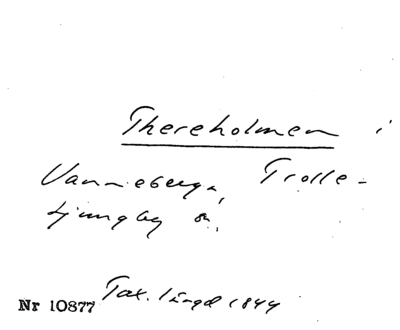 Thereholmen i
Vanneberga, Trolle-
Ljungby sn.
Nr 10877 Tax. längd 1844